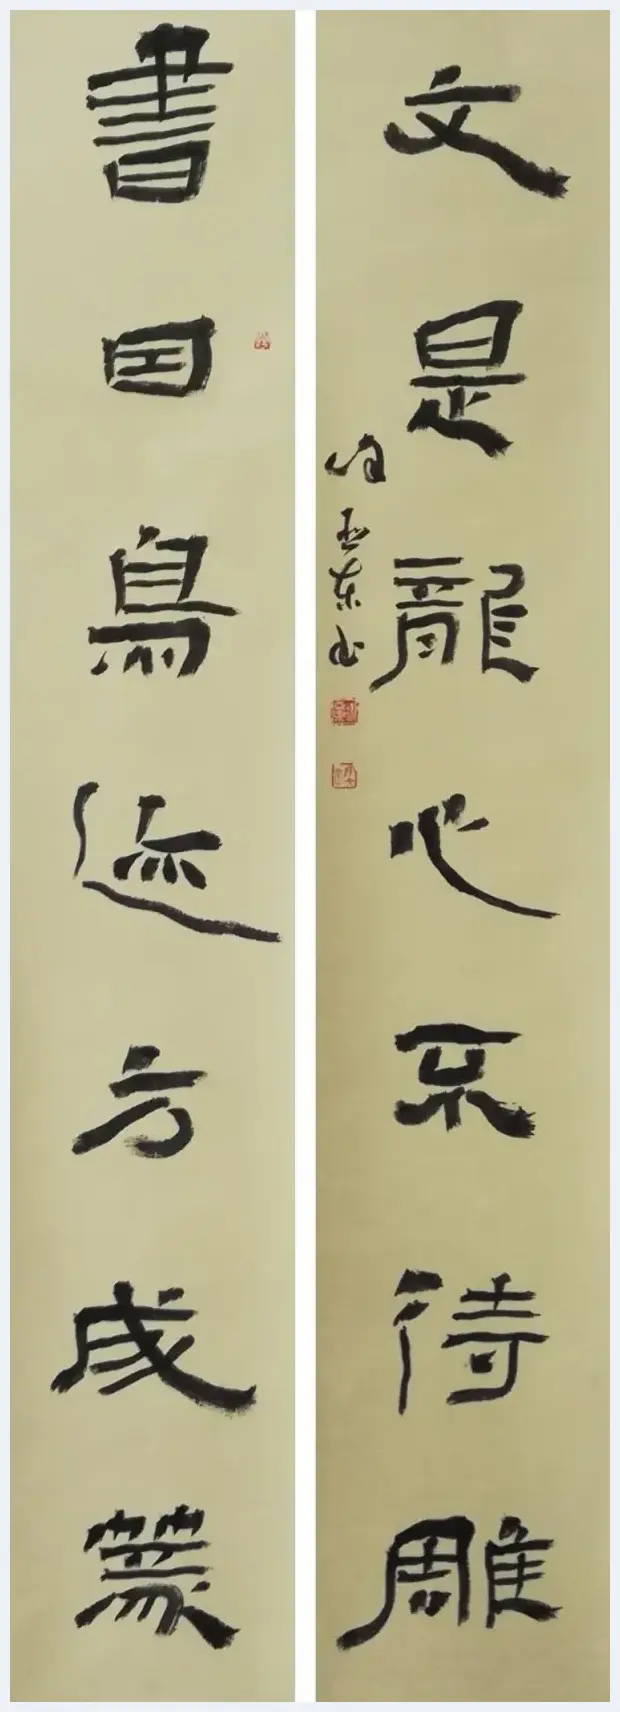 書因鳥迹方成篆
文是龍心不待雕